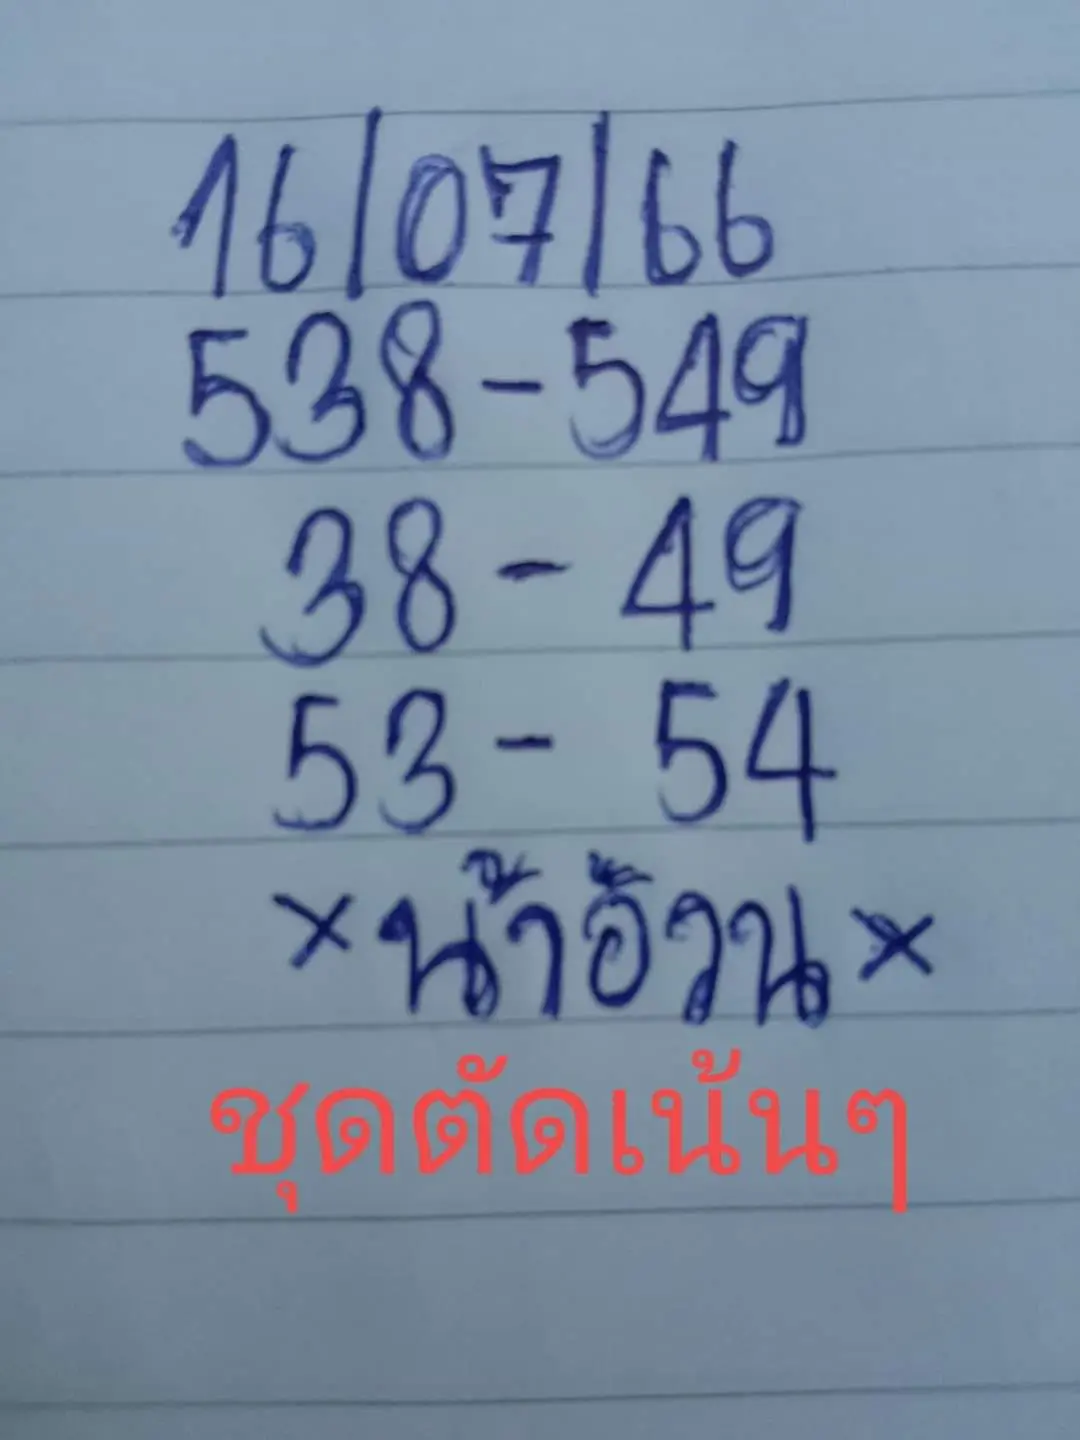 16/07/66
538-549
38-49
53-54
×น้าอ้วน×
ชุดตัดเน้นๆ